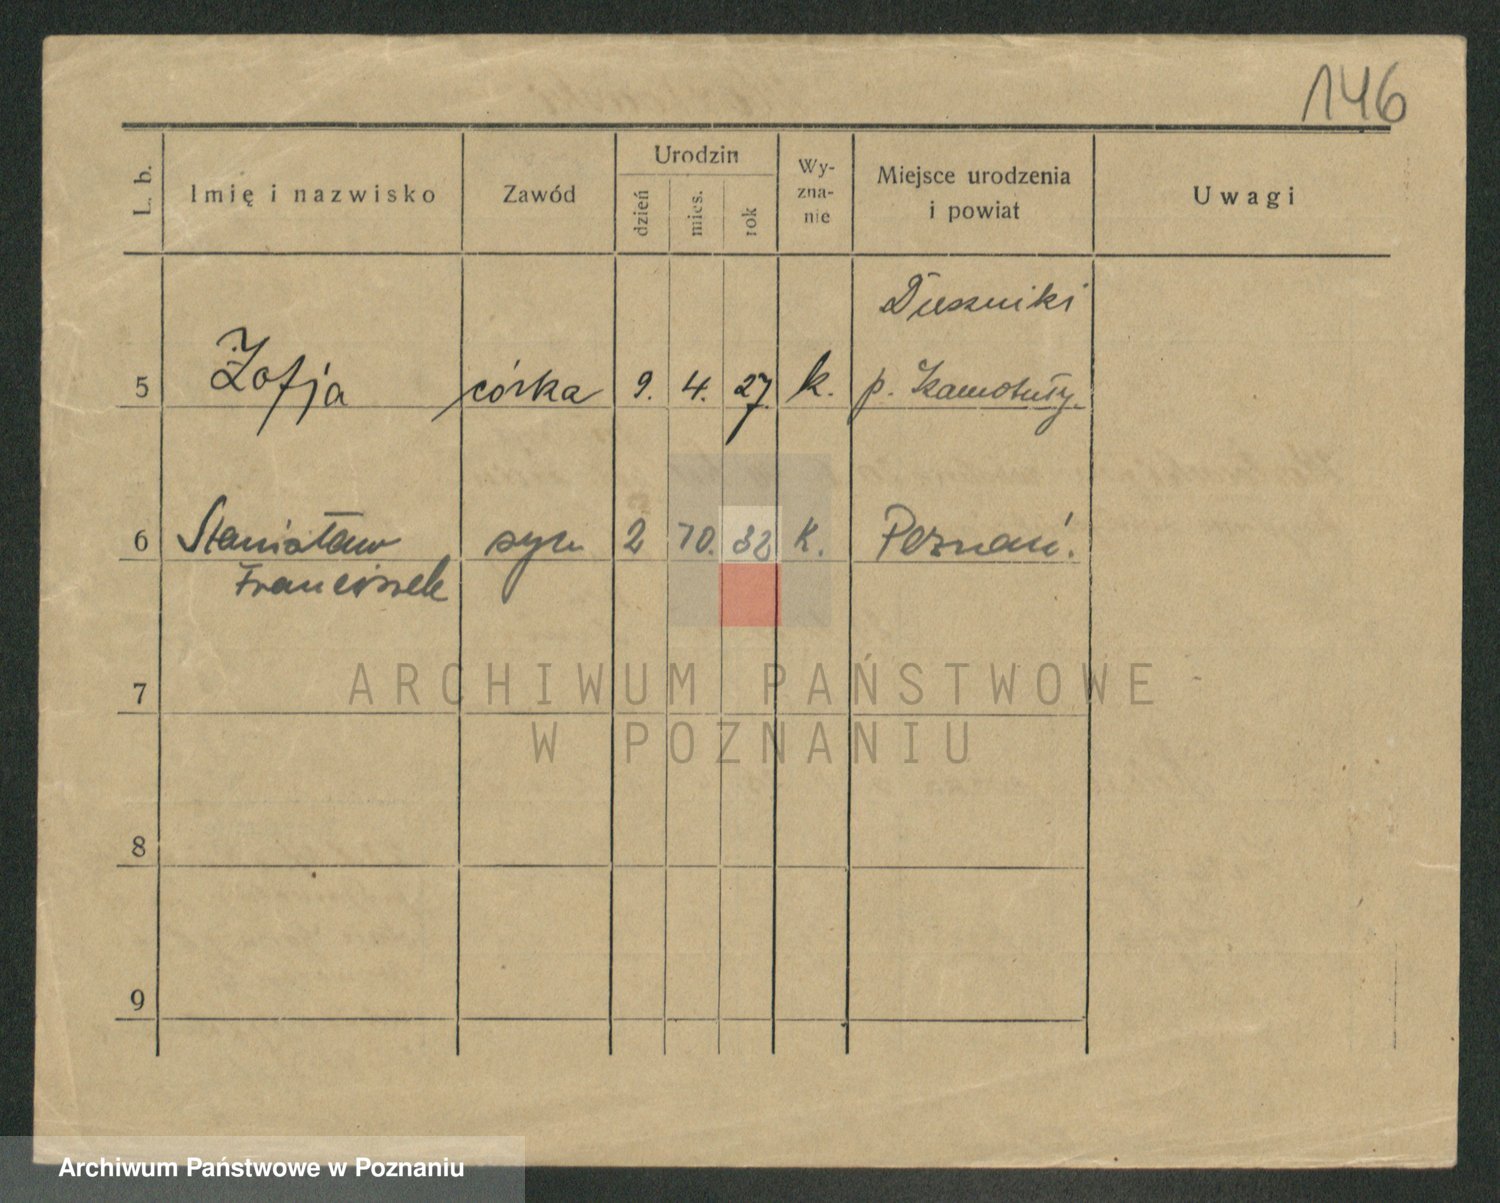 146
L. b. Imię i nazwisko Zawód Urodzin dzień mies. rok Wy-zna-nie Miejsce urodzenia i powiat Uwagi
Duszniki
5 Zofja córka 9. 4. 27. k. p. Szamotuły.
6 Stanisław syn 2 10. 32 k. Poznań.
Franciszek
7
ARCHIWUM PAŃSTWOWE
W POZNANIU
8
9
Archiwum Państwowe w Poznaniu